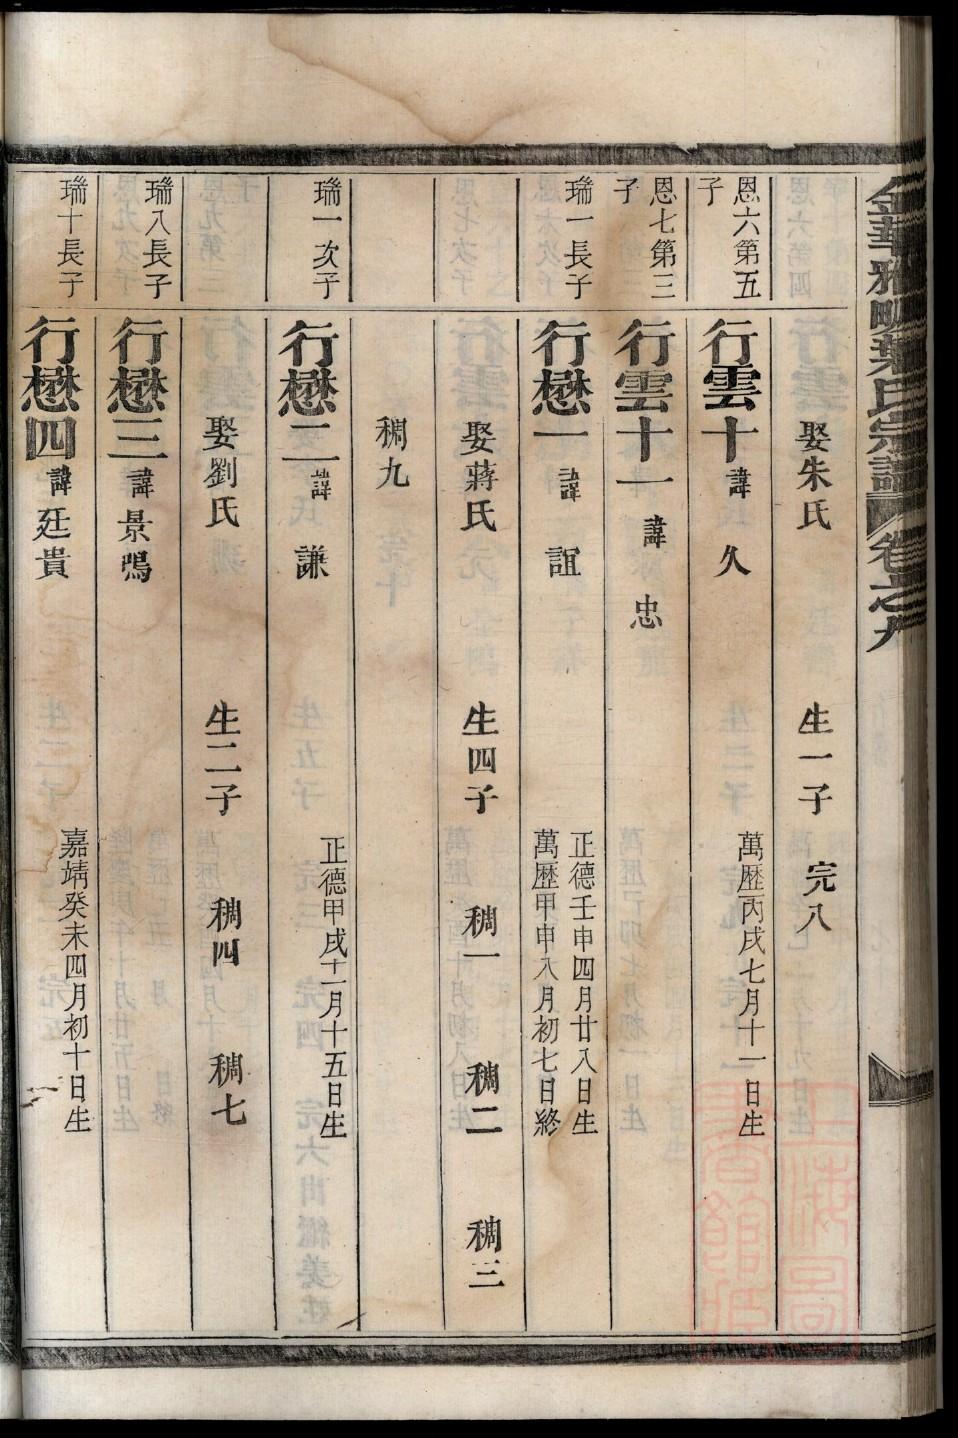 金華雅畈葉氏宗譜 卷之九
娶朱氏 生一子 完八
恩六第五子
行雲十 諱久 萬歷丙戌七月十一日生
恩七第三子
行雲十一 諱忠
瑞一長子
行懋一 諱誼 正德壬申四月廿八日生
萬歷甲申八月初七日終
娶蔣氏 生四子 稠一 稠二 稠三
稠九
瑞一次子
行懋二 諱謙 正德甲戌十一月十五日生
娶劉氏 生二子 稠四 稠七
瑞八長子
行懋三 諱景鳴
瑞十長子
行懋四 諱廷貴 嘉靖癸未四月初十日生